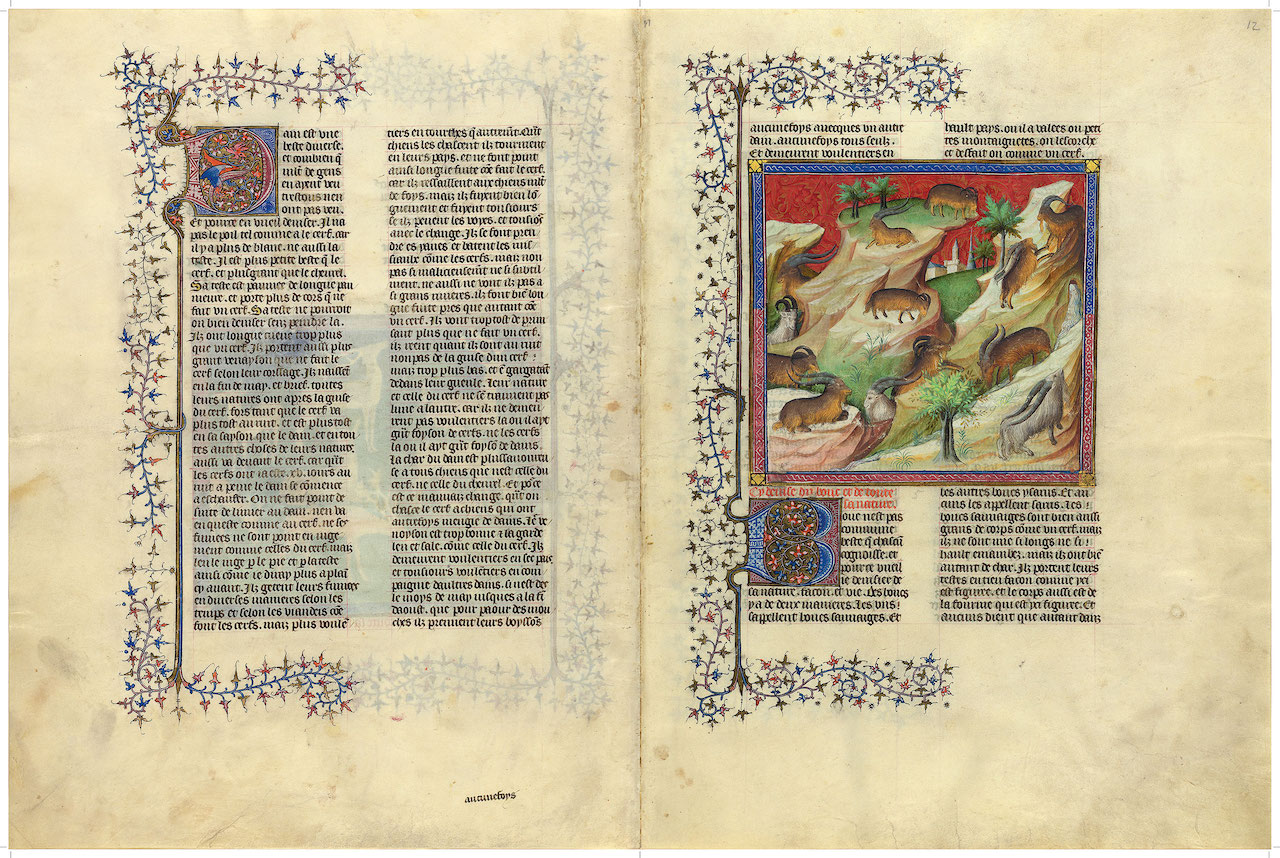 12
Dain est vne
beste diuerse.
et combien q̄
mīlt de gens
en ayent veu
tretous nen
ont pas veu.
Et pource en vueil deuiser. Il na
pas le poil tel comme a le cerf. car
il y a plus de blanc. ne aussi la
teste. Il est plus petite beste q̄ le
cerf. et plus grant que le cheurel.
Sa teste est paumee de longue pau
meure. et porte plus de cors q̄ ne
fait vn cerf. Sa teste ne pourroit
on bien deuiser senz peindre la.
Ilz ont longue queue trop plus
que vn cerf. Ilz portent aussi plus
grant venayson que ne fait le
cerf selon leur corsage. Ilz naissēt
en la fin de may. et brief. toutes
leurs natures ont apres la guise
du cerf. fors tant que le cerf va
plus tost au ruit. et est plus tost
en sa sayson que le dain. et en tou
tes autres choses de leurs natures
aussi va deuant le cerf. car qūt
les cerfs ont este .xv. iours au
ruit a peine le dain se cōmence
a eschaufer. On ne fait point de
suite de limier au dain. nen va
en queste comme au cerf. ne ses
fumees ne sont point en iuge
ment comme celles du cerf. maiz
len le iuge p̄ le pie et p̄ la teste
ainsi cōme ie diray plus a plaī
cy auant. Ilz gietent leurs fumees
en diuerses manieres selon les
temps et selon les viandeis cōe
font les cerfs. maiz plus voulē
tiers en tourches q̄ autremēt. Qūt
chiens les chascent ilz tournient
en leurs pays. et ne font point
ainsi longue fuite cōe fait le cerf.
car ilz ressaillent aux chiens mīlt
de foys. maiz ilz fuyent bien lō
guement et fuyent tousiours
se ilz peuent les voyes. et tousiōs
auec le change. Ilz se font pren
dre es yaues et batent les ruis
siaulx cōme les cerfs. maiz non
pas si malicieusemēt ne si subtil
ment. ne aussi ne vont ilz pas a
si grans riuieres. ilz font biē lon
gue fuite pres que autant cōe
vn cerf. Ilz vont trop tost de prim
saut plus que ne fait vn cerf.
ilz reent quant ilz sont au ruit
non pas de la guise dun cerf :
maiz trop plus bas. et ē gargatāt
dedans leur gueule. leur nature
et celle du cerf ne se trauuent pas
lune a lautre. car ilz ne demeu
rent pas voulentiers la ou il ayt
grāt foyson de cerfs. ne les cerfs
la ou il ayt grāt foysō de dains.
La char du dain est plus sauoureu
se a tous chiens que nest celle du
cerf. ne celle du cheurel. Et po'ce
est ce mauuaiz change. qūt on
chasce le cerf a chiens qui ont
autrefoys mengie de dains. Le ve
noyson est trop bonne ⁊ la garde
len et sale. cōme celle du cerf. Ilz
demeurent voulentiers en sec pays
et tousiours voulētiers en com
paignie dautres dains. si nest des
le moys de may iusques a la fī
daoust. que pour paour des mou
ches ilz prennent leurs boyssōs
aucunefoys
aucunefoys auecques vn autre
dain. aucunefoys tous seulz.
Et demeurent voulentiers en
hault pays. ou il a valees ou peti
tes montaignetes. on lescorche
et deffait on comme vn cerf.
Cy deuise du bouc et de toute
sa nature.
Bouc nest pas
commune
beste q̄ chascun
cognoisse. et
pource vueil
ie deuiser de
sa nature. facon. et vie. Des boucs
y a de deux manieres. Les vns :
sappellent boucs sauuaiges. Et
les autres boucs ysarus. Et au
cuns les appellent sarris. Les :
boucs sauuaiges sont bien aussi
grans de corps cōme vn cerf. maiz
ilz ne sont mie si longs ne si :
hault eniambez. maiz ilz ont biē
autant de char. Ilz portent leurs
testes en tieu facon comme yci
est figure. et le corps aussi est de
la fourme qui est yci figuree. Et
aucuns dient que autant dans